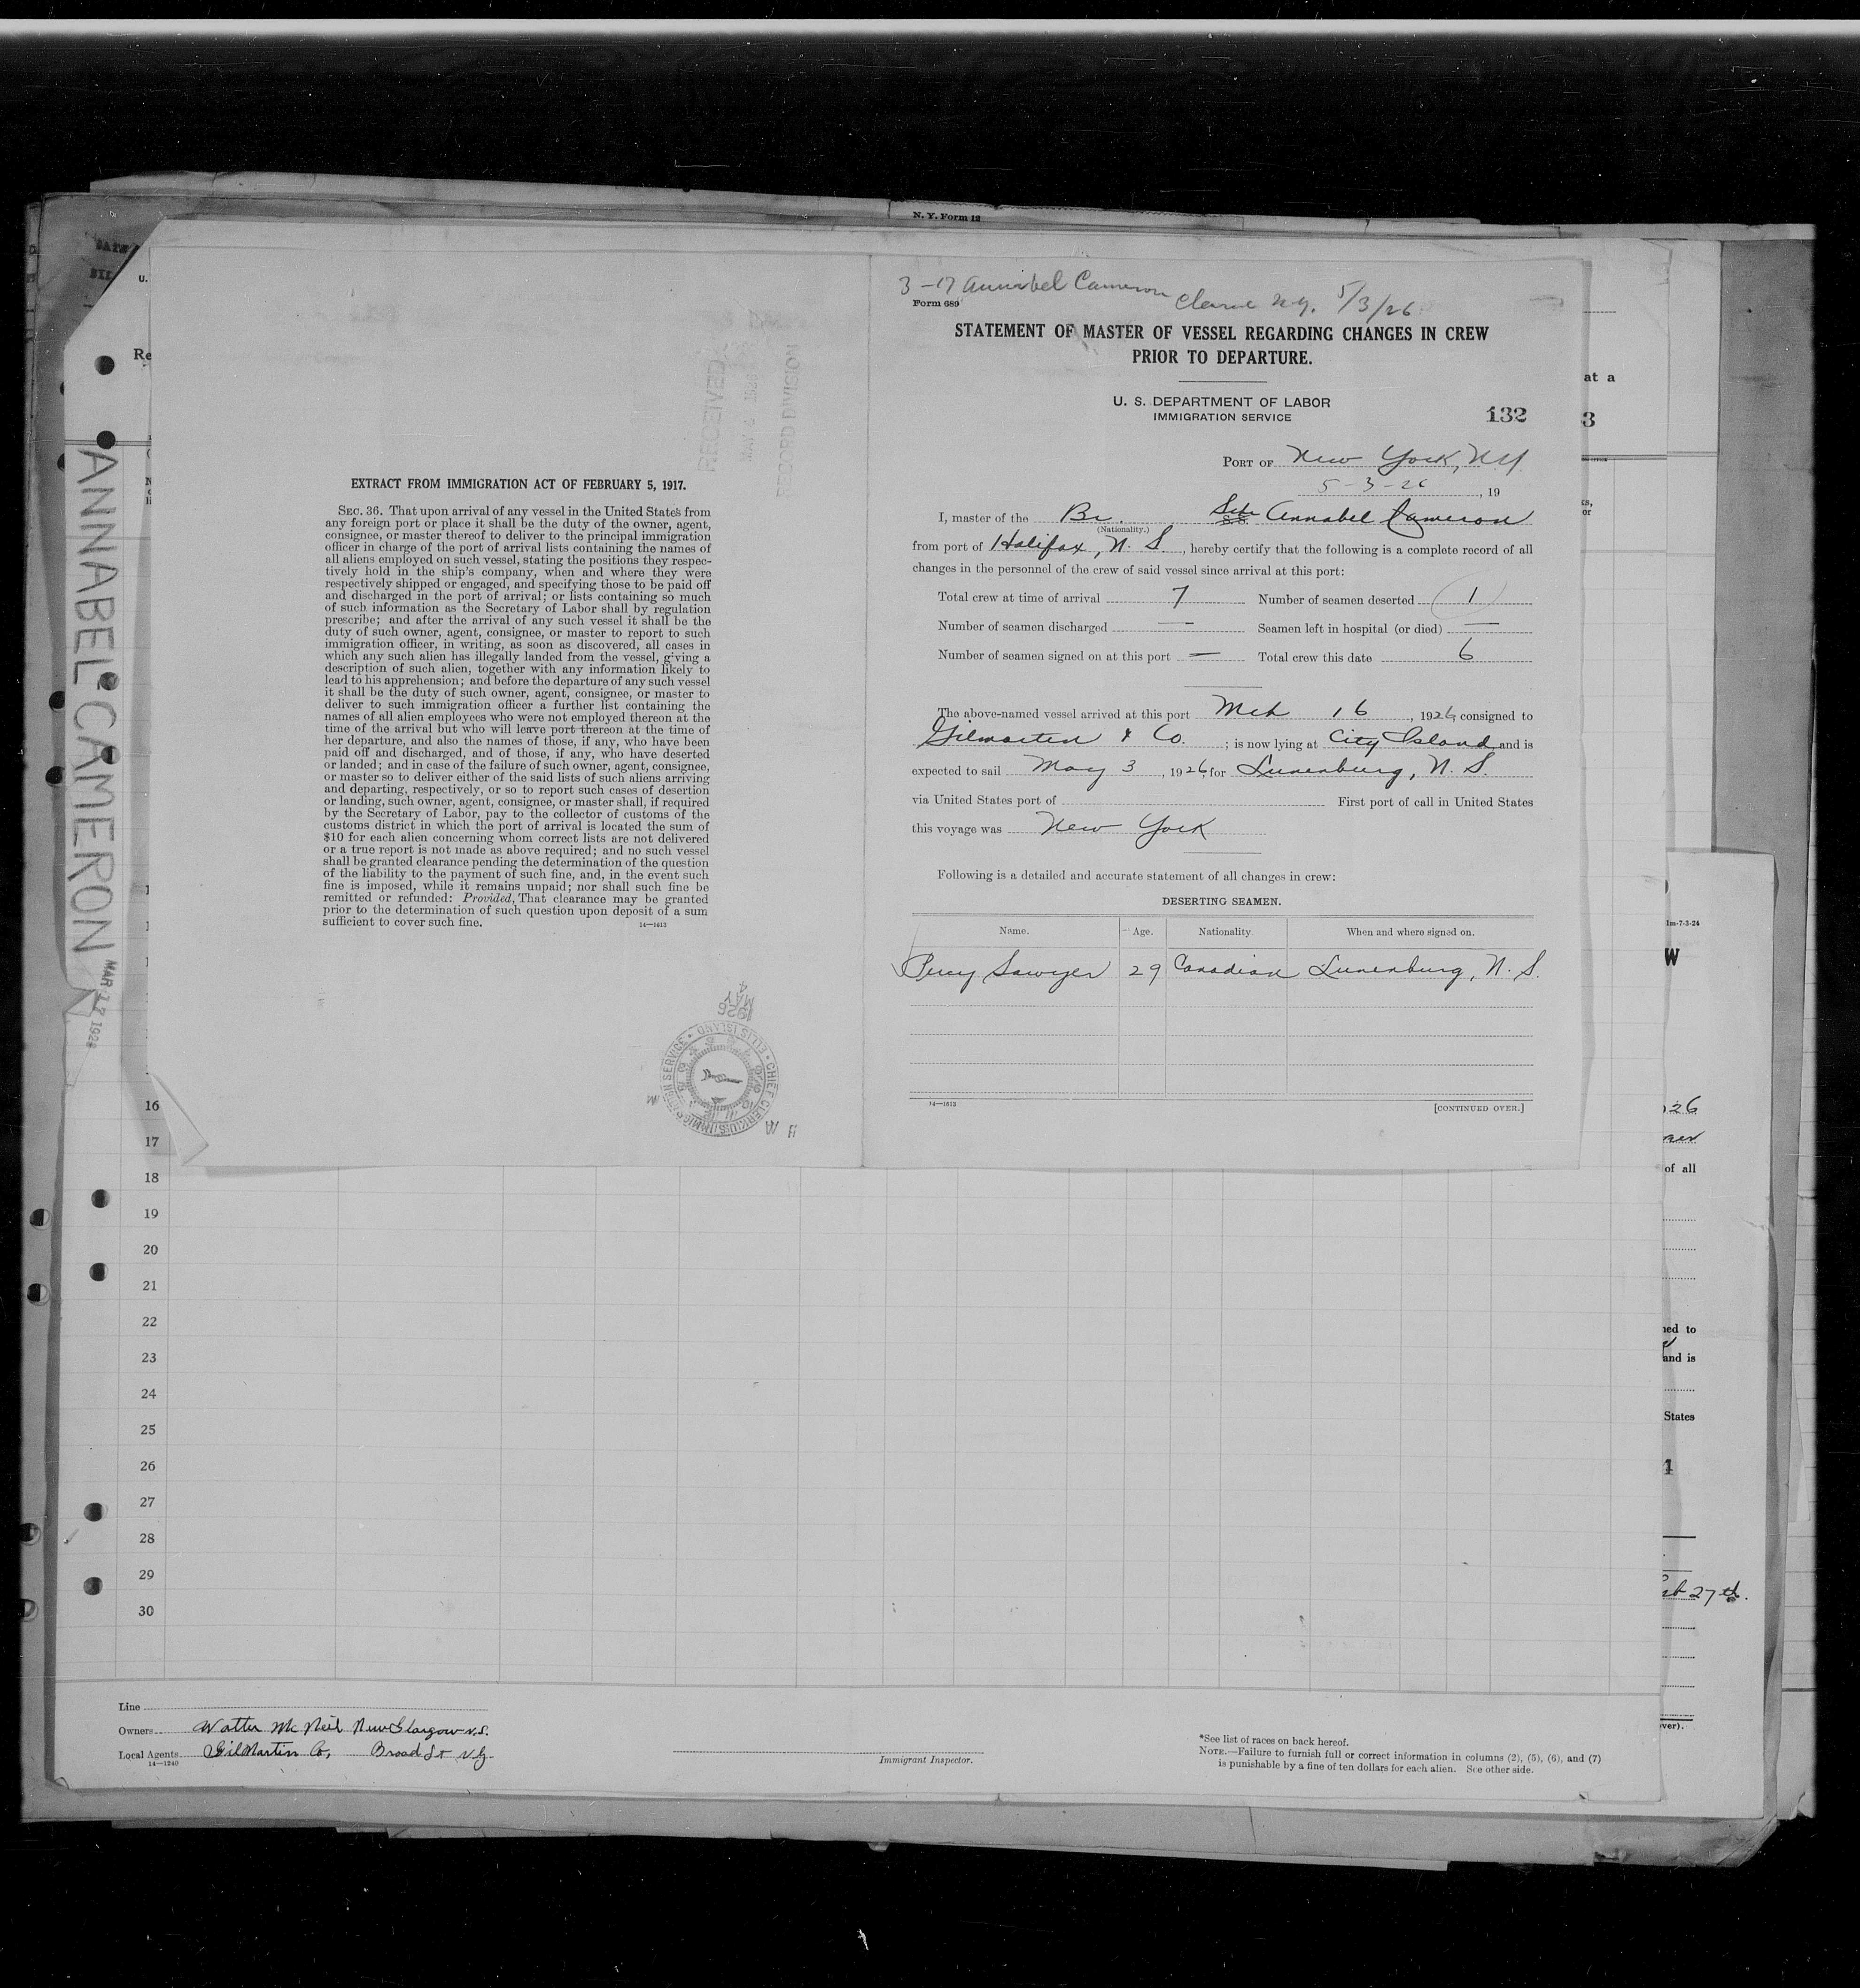 N. Y. Form 12
3-17 Annabel Cameron Cleared N.Y. 5/3/26
Form 689
STATEMENT OF MASTER OF VESSEL REGARDING CHANGES IN CREW
PRIOR TO DEPARTURE.
U. S. DEPARTMENT OF LABOR
IMMIGRATION SERVICE
132
PORT OF New York, N.Y.
5-3-26, 19
I, master of the Br. Sch. S.S. Annabel Cameron
(Nationality.)
from port of Halifax, N. S., hereby certify that the following is a complete record of all
changes in the personnel of the crew of said vessel since arrival at this port:
Total crew at time of arrival 7 Number of seamen deserted 1
Number of seamen discharged — Seamen left in hospital (or died) —
Number of seamen signed on at this port — Total crew this date 6
The above-named vessel arrived at this port Mch 16, 1926, consigned to
Gilmartin & Co.; is now lying at City Island and is
expected to sail May 3, 1926, for Lunenburg, N. S.
via United States port of First port of call in United States
this voyage was New York
Following is a detailed and accurate statement of all changes in crew:
DESERTING SEAMEN.
Name. Age. Nationality When and where signed on.
Percy Sawyer 29 Canadian Lunenburg, N. S.
14—1613
[CONTINUED OVER.]
RECEIVED
MAY 4 1926
RECORD DIVISION
EXTRACT FROM IMMIGRATION ACT OF FEBRUARY 5, 1917.
SEC. 36. That upon arrival of any vessel in the United States from
any foreign port or place it shall be the duty of the owner, agent,
consignee, or master thereof to deliver to the principal immigration
officer in charge of the port of arrival lists containing the names of
all aliens employed on such vessel, stating the positions they respec-
tively hold in the ship's company, when and where they were
respectively shipped or engaged, and specifying those to be paid off
and discharged in the port of arrival; or lists containing so much
of such information as the Secretary of Labor shall by regulation
prescribe; and after the arrival of any such vessel it shall be the
duty of such owner, agent, consignee, or master to report to such
immigration officer, in writing, as soon as discovered, all cases in
which any such alien has illegally landed from the vessel, giving a
description of such alien, together with any information likely to
lead to his apprehension; and before the departure of any such vessel
it shall be the duty of such owner, agent, consignee, or master to
deliver to such immigration officer a further list containing the
names of all alien employees who were not employed thereon at the
time of the arrival but who will leave port thereon at the time of
her departure, and also the names of those, if any, who have been
paid off and discharged, and of those, if any, who have deserted
or landed; and in case of the failure of such owner, agent, consignee,
or master so to deliver either of the said lists of such aliens arriving
and departing, respectively, or so to report such cases of desertion
or landing, such owner, agent, consignee, or master shall, if required
by the Secretary of Labor, pay to the collector of customs of the
customs district in which the port of arrival is located the sum of
$10 for each alien concerning whom correct lists are not delivered
or a true report is not made as above required; and no such vessel
shall be granted clearance pending the determination of the question
of the liability to the payment of such fine, and, in the event such
fine is imposed, while it remains unpaid; nor shall such fine be
remitted or refunded: Provided, That clearance may be granted
prior to the determination of such question upon deposit of a sum
sufficient to cover such fine.
14—1613
1926
MAY
4
CHIEF CLERK U.S. IMMIGRATION SERVICE ELLIS ISLAND
ANNABEL CAMERON
MAR 17 1926
at a
3
1m-7-3-24
W
of all
and is
States
27th.
16
17
18
19
20
21
22
23
24
25
26
27
28
29
30
Line
Owners Walter McNeil New Glasgow N.S.
Local Agents GilMartin Co, Broad St N.Y.
14—1240
Immigrant Inspector.
*See list of races on back hereof.
NOTE.—Failure to furnish full or correct information in columns (2), (5), (6), and (7)
is punishable by a fine of ten dollars for each alien. See other side.